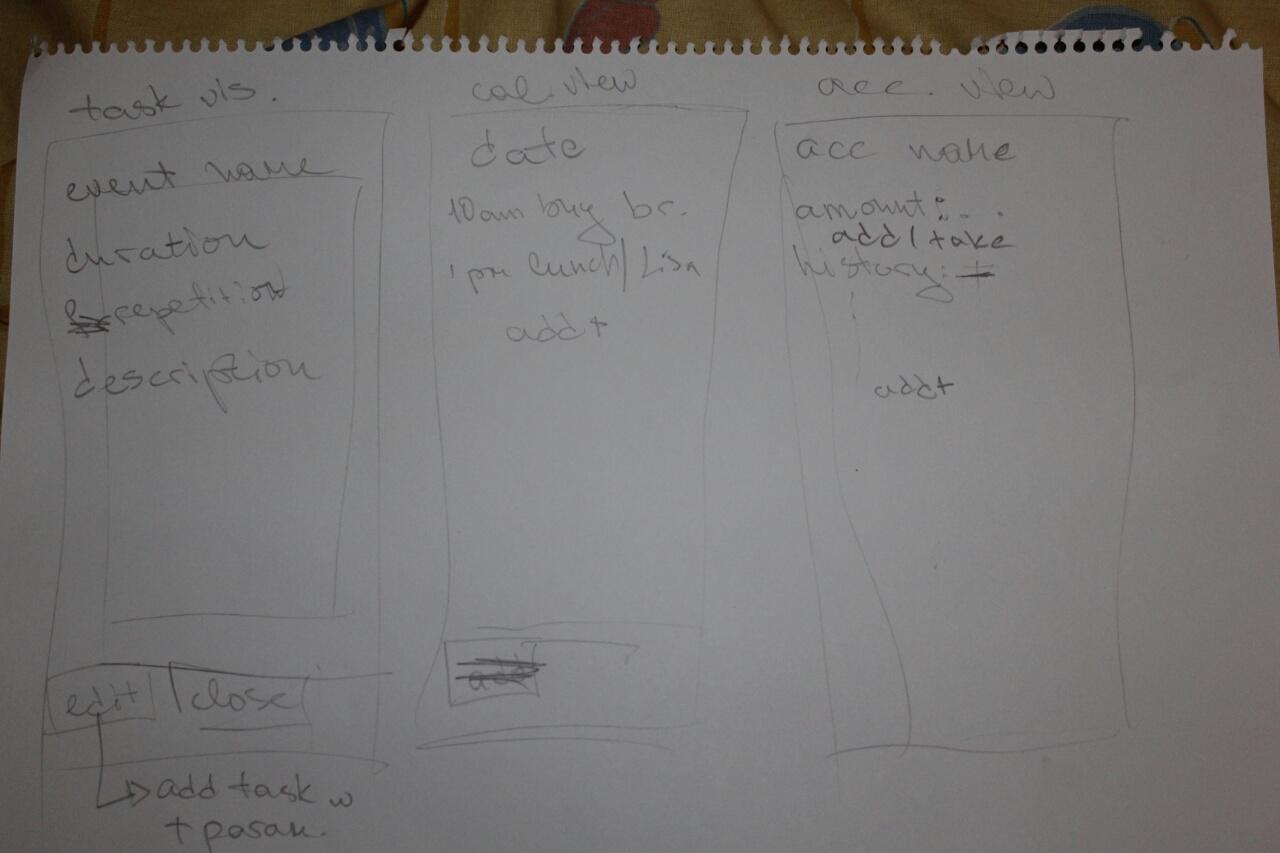 task vis.
event name
duration
repetition
description
edit
close
add task w
+ param.
cal. view
date
10am buy br.
1 pm lunch/Lisa
add +
add
acc. view
acc name
amount: . .
add / take
history: +
add+